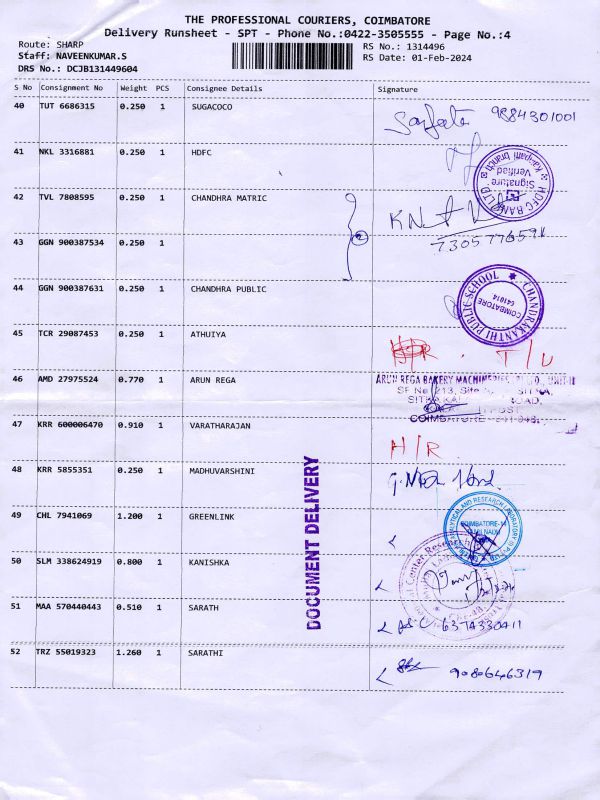 THE PROFESSIONAL COURIERS, COIMBATORE
Delivery Runsheet - SPT - Phone No.:0422-3505555 - Page No.:4
Route: SHARP
Staff: NAVEENKUMAR.S
DRS No.: DCJB131449604
RS No.: 1314496
RS Date: 01-Feb-2024
S No Consignment No Weight PCS Consignee Details Signature
40 TUT 6686315 0.250 1 SUGACOCO 9884301001
41 NKL 3316881 0.250 1 HDFC
HDFC BANK LTD
Signature Verified
42 TVL 7808595 0.250 1 CHANDHRA MATRIC
43 GGN 900387534 0.250 1
44 GGN 900387631 0.250 1 CHANDHRA PUBLIC
CHANDRAKANTHI PUBLIC SCHOOL
COIMBATORE 641014
45 TCR 29087453 0.250 1 ATHUIYA T/U
46 AMD 27975524 0.770 1 ARUN REGA
ARUN REGA BAKERY MACHINERIES
47 KRR 600006470 0.910 1 VARATHARAJAN H/R.
48 KRR 5855351 0.250 1 MADHUVARSHINI
49 CHL 7941069 1.200 1 GREENLINK
ANALYTICAL AND RESEARCH LABORATORY
COIMBATORE-14
TAMILNADU
50 SLM 338624919 0.800 1 KANISHKA
51 MAA 570440443 0.510 1 SARATH 6374330411
52 TRZ 55019323 1.260 1 SARATHI 9080646319
DOCUMENT DELIVERY